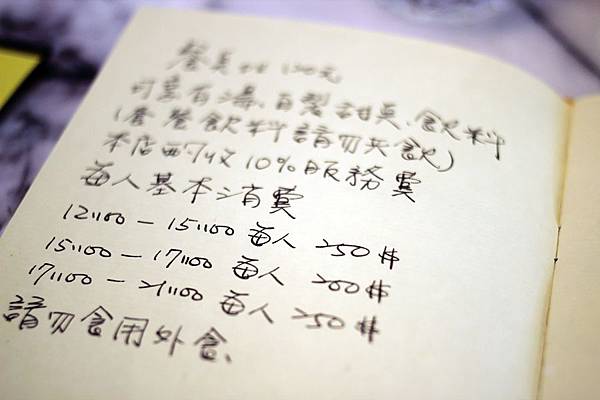 餐美加 120元
可享有湯、自製甜點、飲料
(套餐飲料請勿共飲)
本店酌收10%服務費
每人基本消費
12:00 - 15:00 每人 250#
15:00 - 17:00 每人 200#
17:00 - 21:00 每人 250#
請勿食用外食、